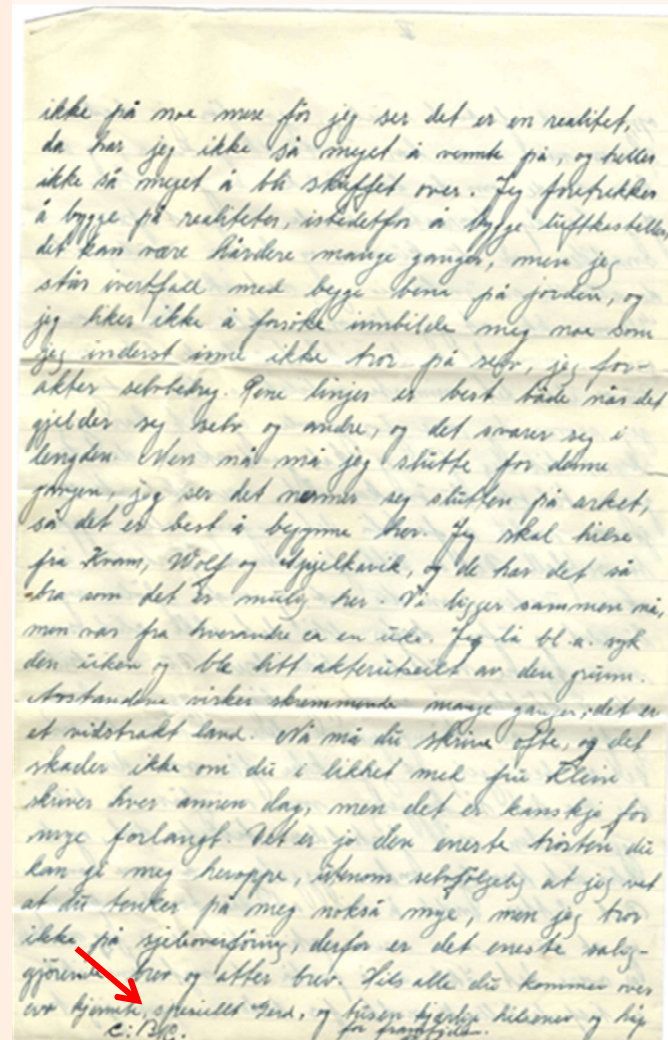 ikke på noe mere før jeg ser det er en realitet,
da har jeg ikke så meget å vennte på, og heller
ikke så meget å bli skuffet over. Jeg foretrekker
å bygge på realiteter, istedetfor å bygge luftkasteller,
det kan være hårdere mange ganger, men jeg
står ivertfall med begge bene på jorden, og
jeg liker ikke å forsøke innbilde meg noe som
jeg inderst inne ikke tror på selv, jeg for-
akter selvbedrag. Rene linjer er best både når det
gjelder seg selv og andre, og det svarer seg i
lengden. Men nå må jeg slutte for denne
gangen, jeg ser det nermer seg slutten på arket,
så det er best å begynne her. Jeg skal hilse
fra Kvam, Wolf og, og de har det så
bra som det er mulig her. Vi ligger sammen nå,
men var fra hverandre ca en uke. Jeg lå bl.a. syk
den uken og ble litt akterutseilt av den grunn.
Avstandene virker skremmende mange ganger, det er
et vidstrakt land. Nå må du skrive ofte, og det
skader ikke om du i likhet med fru Klein
skriver hver annen dag, men det er kanskje for
mye forlangt. Det er jo den eneste trøsten du
kan gi meg heroppe, utenom selvfølgelig at jeg vet
at du tenker på meg nokså mye, men jeg tror
ikke på sjeleoverføring, derfor er det eneste salig-
gjørende brev og atter brev. Hils alle du kommer over
evt hjemme, spesiellt Gerd, og tusen kjærlige hilsener og håp
for framtiden.